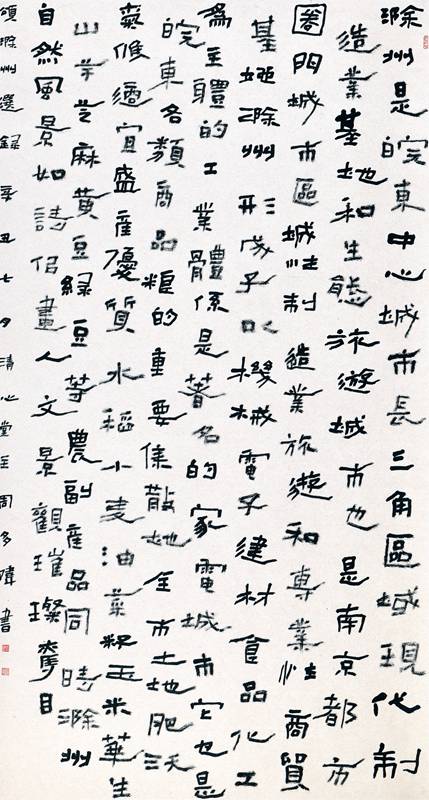 滁州是皖東中心城市長三角區域現代制
造業基地和生態旅遊城市也是南京都市
圈門城市區域性制造業旅遊和專業性商貿
基地滁州形成了以機械電子建材食品化工
為主體的工業體係是著名的家電城市它也是
皖東名類商品粮的重要集散地全市土地肥沃
氣候適宜盛產優質水稻小麦油菜籽玉米華生
山芋芝麻黄豆綠豆等農副產品同時滁州
自然風景如詩侣畫人文景觀璀璨奪目
頌滁州選録辛丑七月清心堂主周多瑋書